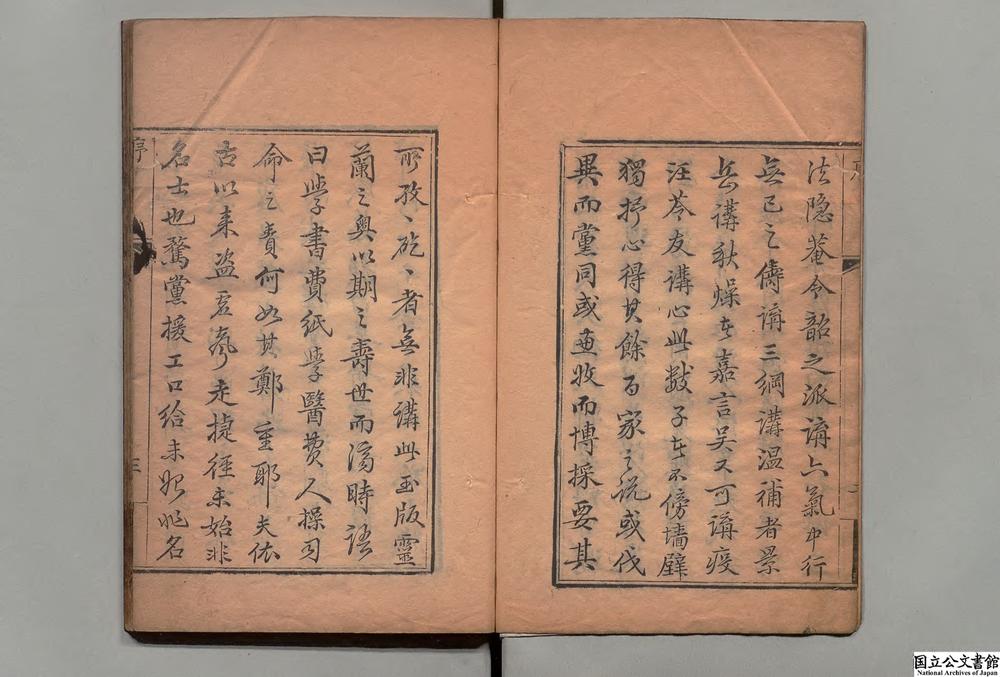 法隐菴令韶之派講六氣中行
無已之儔講三綱講温補者景
岳講秋燥者嘉言吴又可講疫
汪苓友講心此數子者不傍墻壁
獨抒心得其餘百家之说或伐
異而黨同或蒐收而博採要其
所孜〻矻〻者無非講此玉版靈
蘭之奥以期之壽世而濟時語
曰學書費紙學醫費人操司
命之責何如其鄭重耶夫依
古以来盗虚声走捷徑未始非
名士也騖黨援工口给未始非名
序
三
国立公文書館
National Archives of Japan